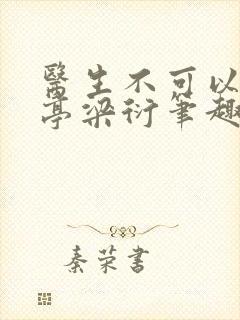 醫生不可以
亭梁衍筆趣
秦荣書